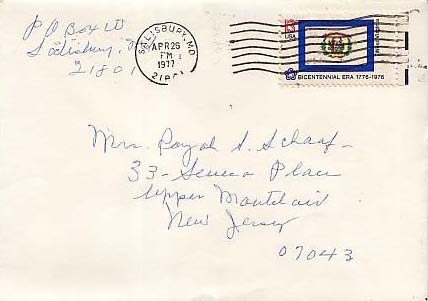 P O Box
Salisbury,
21801
SALISBURY, MD
APR 26
PM
1977
USA
BICENTENNIAL ERA 1776-1976
Mrs. Royal S. Schaaf
33 - Seneca Place
Upper Montclair
New Jersey
07043